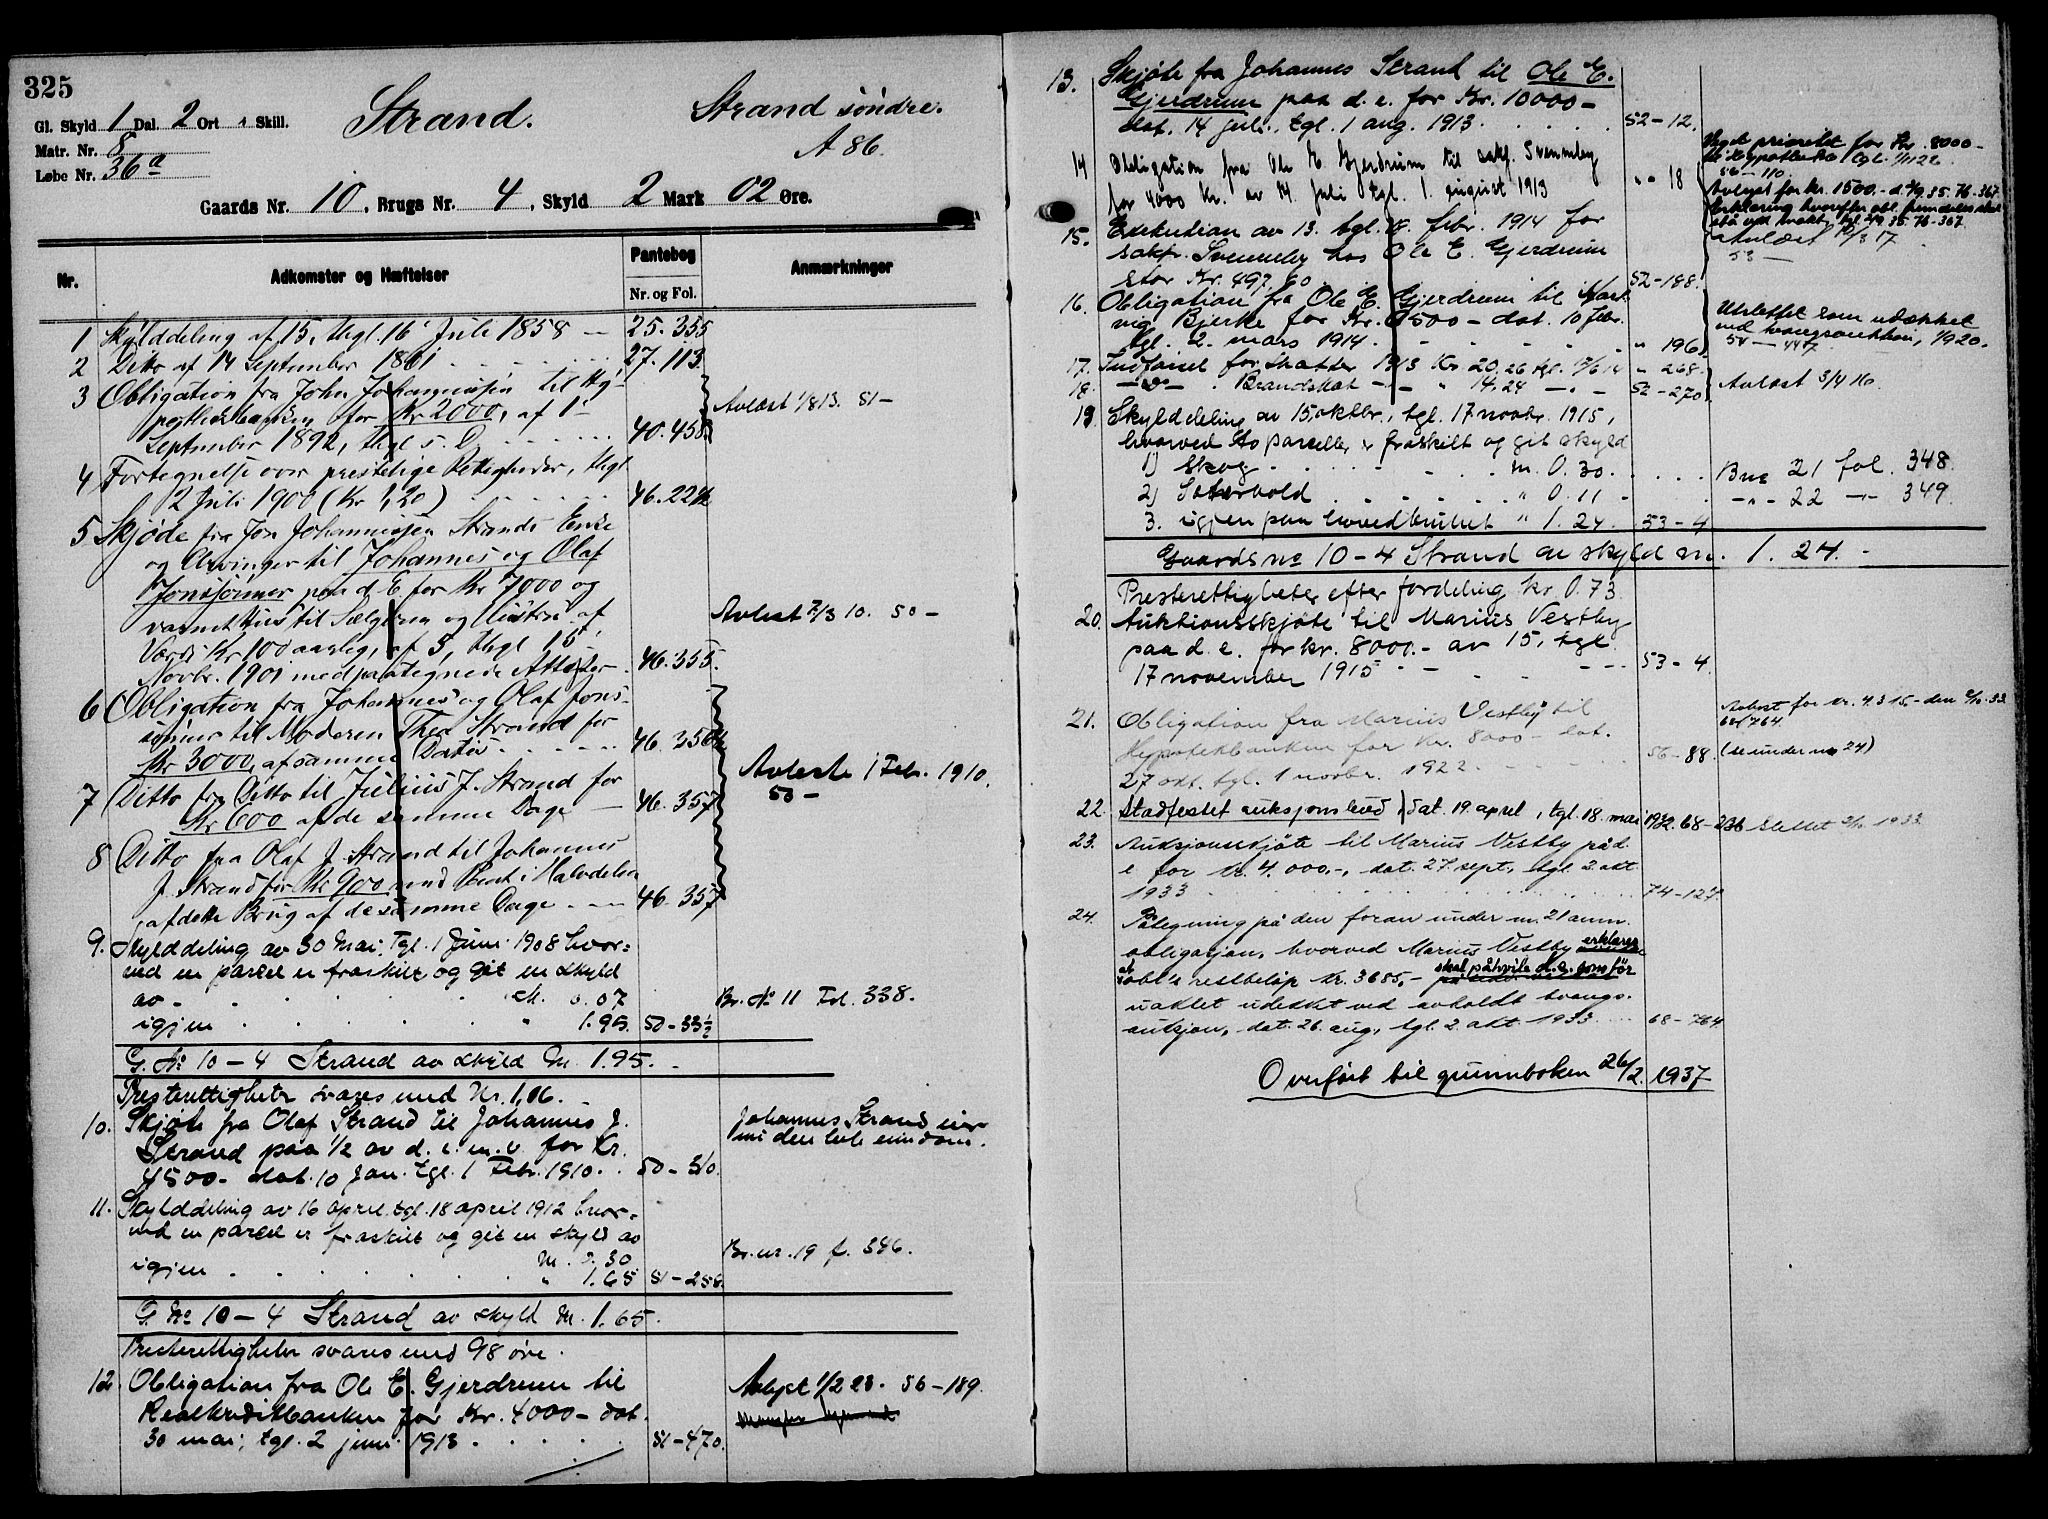 325
Gl. Skyld 1 Dal. 2 Ort " Skill.
Matr. Nr. 8
Løbe Nr. 36a
Strand.
Strand søndre.
A 86.
Gaards Nr. 10, Brugs Nr. 4, Skyld 2 Mark 02 Øre.
Nr.
Adkomster og Hæftelser
Pantebog
Nr. og Fol.
Anmærkninger
1 Skylddeling af 15, thgl. 16 Juli 1858 — 25. 355
2 Ditto af 14 September 1861 27. 113
3 Obligation fra John Johannessen til Hy-
pothekbanken for Kr 2000, af 1
September 1892, thgl s. D. 40. 458
Avlæst 1/8 13. 51 —
4 Fortegnelse over prestelige Rettigheder, thgl
2 Juli 1900 (Kr 1,20) 46. 224
5 Skjøde fra Jon Johannessen Strands Enke
og Arvinger til Johannes og Olaf
Jonssønner paa d. E for Kr 7000 og
varmt Hus til Sælgeren og Hustru af
Værdi Kr 100 aarlig, af 5, thgl 15
Novbr. 1901 med paategnede Attester 46. 355.
Avlæst 2/3 10. 50 —
6 Obligation fra Johannes og Olaf Jons-
sønner til Moderen Thea Strand for
Kr 3000, af samme Datoer 46. 356
7 Ditto fra Ditto til Julius J. Strand for
Kr 600 af de samme Dage — 46. 357
Avlæste 1 Febr. 1910.
50 —
8 Ditto fra Olaf J. Strand til Johannes
J. Strand for Kr 900 med Pant i Halvdelen
af dette Brug af de samme Dage — 46. 357
9. Skylddeling av 30 Mai, tgl. 1 Juni 1908 hvor-
ved en parcel er fraskilt og git en skyld
av M. 0.07
Br. No 11 Fol. 338.
igjen " 1.95. 50 - 33 1/2
G. No 10 — 4 Strand av skyld M. 1.95. —
Presterettigheter svares med Kr. 1,16.
10. Skjøte fra Olaf Strand til Johannes J.
Strand paa 1/2 av d. e. m. v. for Kr.
4500 - dat. 10 Jan. tgl. 1 Febr. 1910. 50 - 310.
Johannes Strand eier
nu den hele eiendom.
11. Skylddeling av 16 april, tgl. 18 april 1912 hvor-
ved en parcel er fraskilt og git en skyld av
M. 0.30
Br. nr. 19 f. 346.
igjen " 1.65 51 - 258.
G. No 10 — 4 Strand av skyld M. 1.65.
Presterettigheter svares med 98 øre.
12. Obligation fra Ole E. Gjerdrum til
Realkreditbanken for Kr. 4000 — dat.
30 mai, tgl. 2 juni 1913. 51 - 470.
Avlyst 1/2 23. 56 - 189.
13. Skjøte fra Johannes Strand til Ole E.
Gjerdrum paa d. e. for Kr. 10000 —
dat. 14 juli, tgl. 1 aug. 1913. 52 - 12.
14 Obligation fra Ole E. Gjerdrum til sakf. Svenneby
for 4000 Kr. av 14 Juli tgl. 1. august 1913 " - 18
Veget prioritet for Kr. 8000 —
til Hypotekba tgl. 1/11 22.
56 — 110.
Avlyst for kr. 1500.- d. 2/9 35. 76 - 367.
Erklæring hvorefter obl. fremdeles skal
stå ved makt, tgl. 2/9 35. 76 - 367.
15. Exekution av 13. tgl. febr. 1914 for
sakfr. Svenneby hos Ole E. Gjerdrum
stor Kr. 497,60 52 - 188.
Avlæst 12/3 17.
53 —
16. Obligation fra Ole E. Gjerdrum til Hart-
vig Bjerke for Kr. 1500 — dat. 10 febr.
tgl. 2. mars 1914. " 196
Utslettet som udækket
ved tvangsauktion, 1920.
54 — 447
17. Indførsel for skatter 1913 Kr 20,26 tgl. 17/6 14 " 268.
18. — " — . Brandskat — " — 14,24 — " — 52 - 270
Avlæst 3/4 16.
19 Skylddeling av 15 oktbr., tgl. 17 novbr. 1915,
hvorved to parceller er fraskilt og git skyld
1) Skog m. 0.30. Bnr 21 fol. 348.
2) Sætervold " 0.11 — " — 22 — " — 349.
3. igjen paa hovedbruket " 1.24. 53 - 4
Gaards no 10 — 4 Strand av skyld m. 1.24. —
Presterettigheter efter fordeling kr. 0.73.
20. Auktionsskjøte til Marius Vestby
paa d. e. for kr. 8000. — av 15, tgl.
17 november 1915 53 - 4.
21. Obligation fra Marius Vestby til
Hypotekbanken for kr. 8000 — dat.
27 okt. tgl. 1 novbr. 1922. 56 - 88.
Avlyst for kr. 4315,- den 2/10.33
68/764
(se under no 24)
22. Stadfestet auksjonsbud dat. 19. april, tgl. 18. mai 1932. 68 - 236 Slettet 2/10 1933.
23. Auksjonsskjøte til Marius Vestby på d.
e for kr. 4.000,-, dat. 27. sept., tgl. 2 okt
1933 74 - 127.
24. Påtegning på den foran under nr. 21 anm.
obligasjon, hvorved Marius Vestby erklærer
at obl's restbeløp kr. 3685,- skal påhvile d. e. som før
uaktet udekket ved avholdt tvangs-
auksjon, dat. 26 aug., tgl. 2 okt 1933 68 - 764
Overført til grunnboken 26/2. 1937